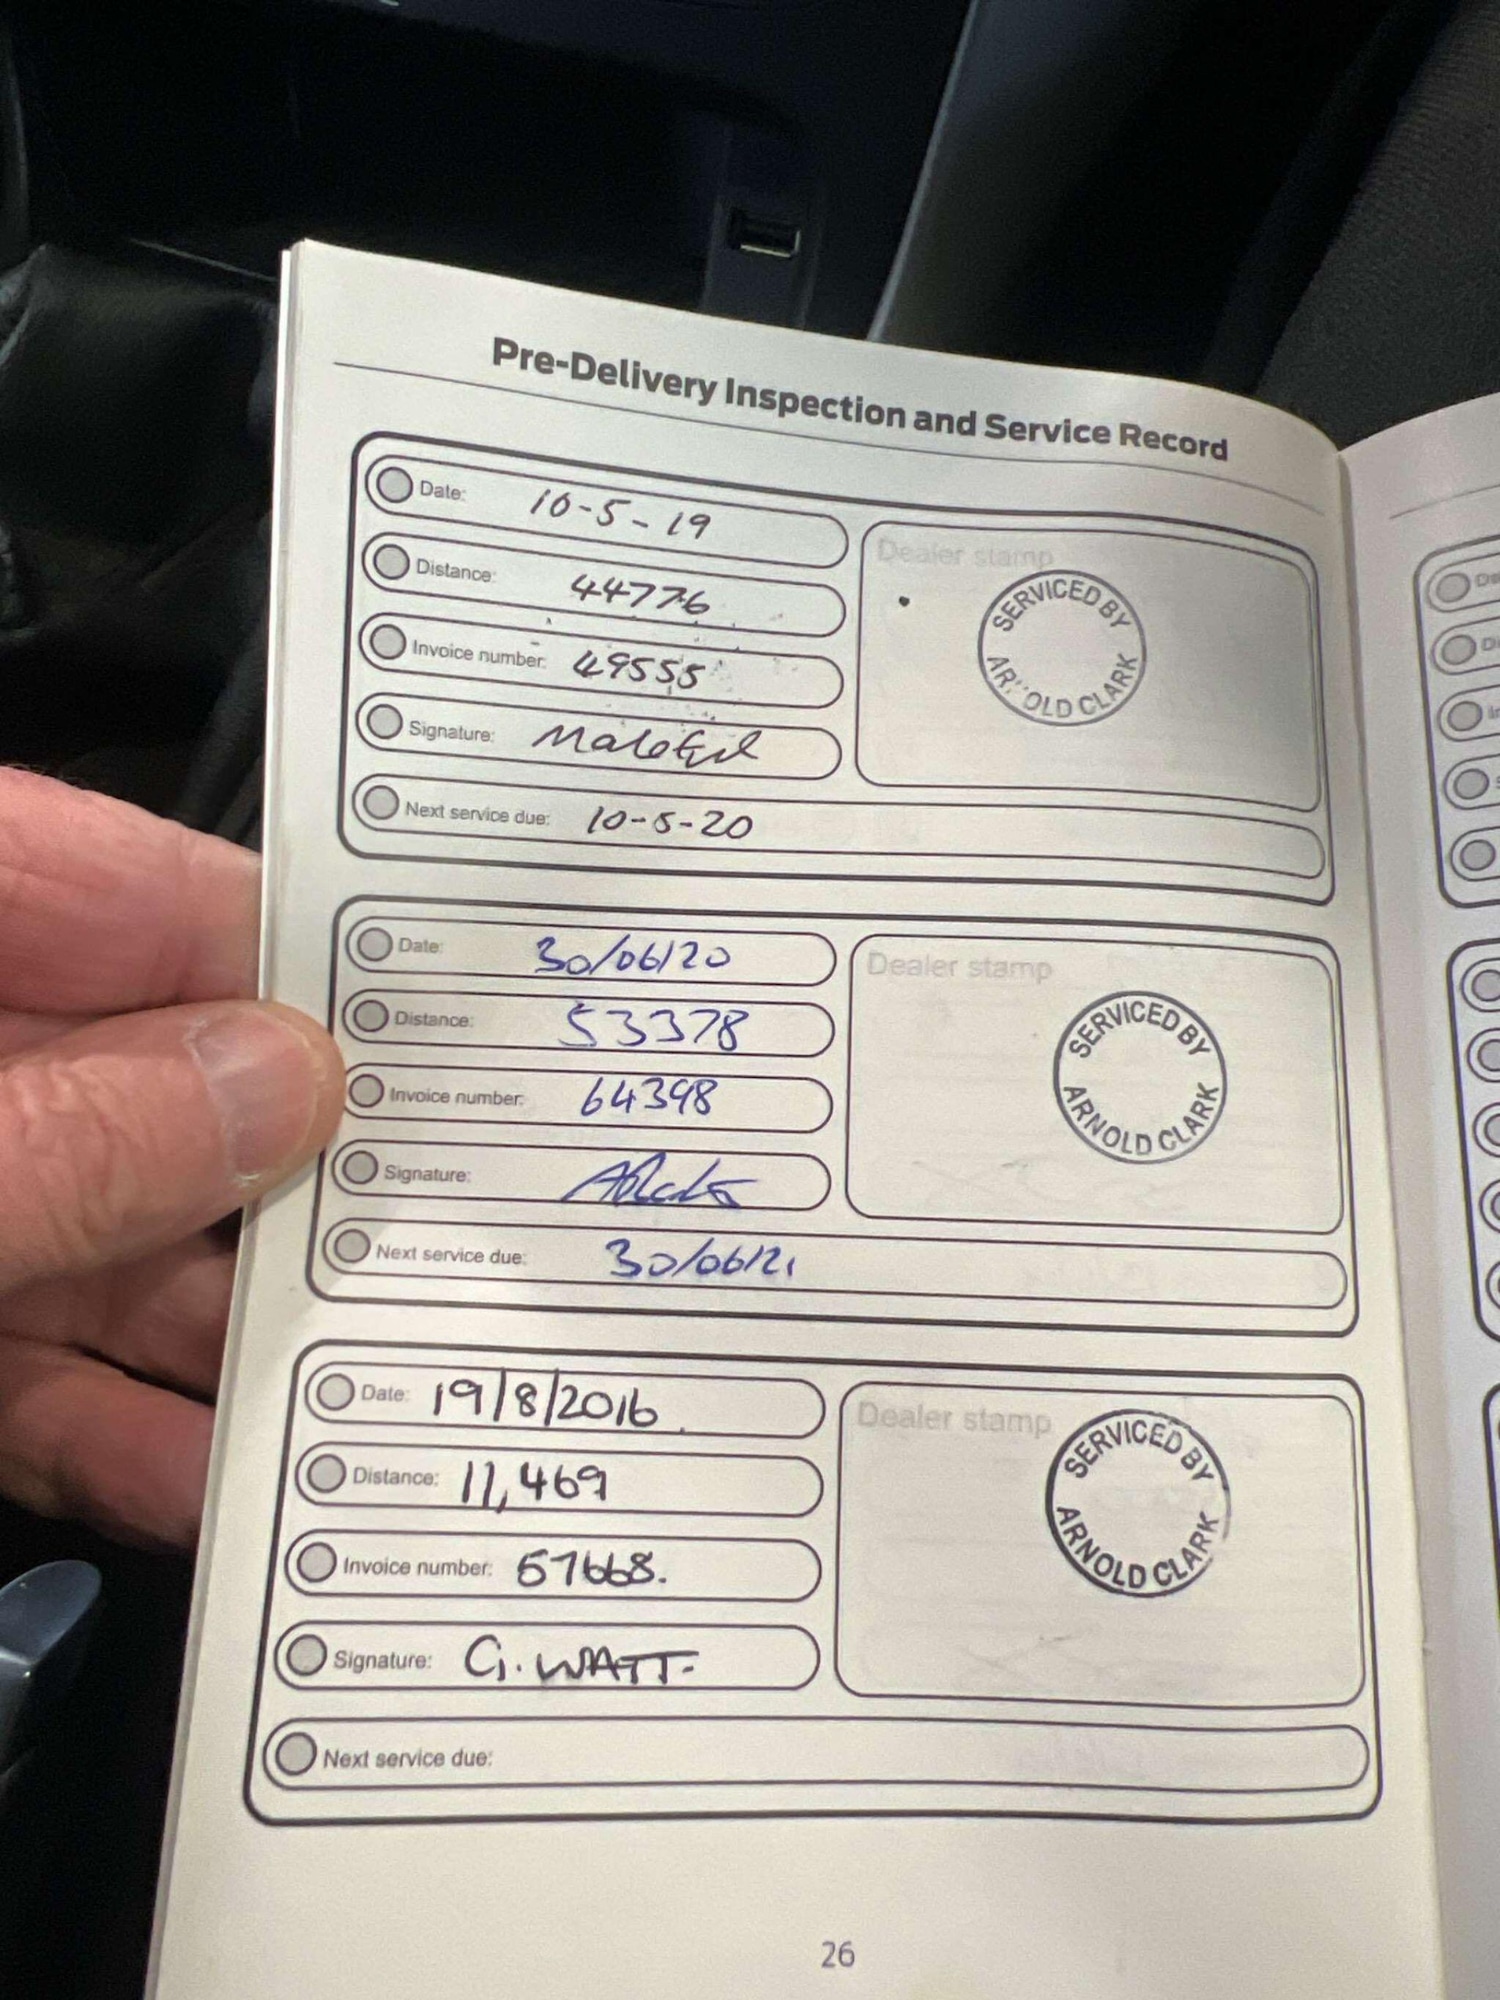 Pre-Delivery Inspection and Service Record
Date: 10-5-19
Distance: 44776
Invoice number: 49555
Signature:
Next service due: 10-5-20
Dealer stamp
SERVICED BY
ARNOLD CLARK
Date: 30/06/20
Distance: 53378
Invoice number: 64398
Signature:
Next service due: 30/06/21
Dealer stamp
SERVICED BY
ARNOLD CLARK
Date: 19/8/2016
Distance: 11,469
Invoice number: 57668.
Signature: G. WATT.
Next service due:
Dealer stamp
SERVICED BY
ARNOLD CLARK
26